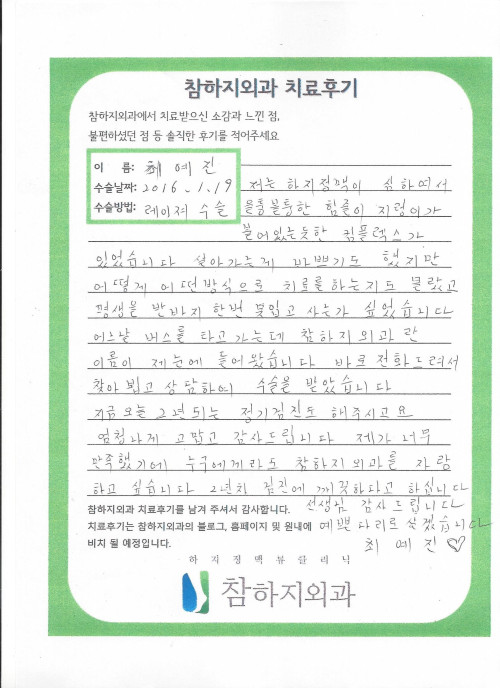 참하지외과 치료후기
참하지외과에서 치료받으신 소감과 느낀 점,
불편하셨던 점 등 솔직한 후기를 적어주세요
이 름: 최예진
수술날짜: 2016.1.19
수술방법: 레이져 수술
저는 하지정맥이 심하여서
울퉁불퉁한 힘줄이 지렁이가
붙어있는듯한 컴플렉스가
있었습니다 살아가는게 바쁘기도 했지만
어떻게 어떤방식으로 치료를하는지도 몰랐고
평생을 반바지 한번 못입고 사는가 싶었습니다
어느날 버스를 타고가는데 참하지외과 란
이름이 제눈에 들어왔습니다 바로 전화드려서
찾아 뵙고 상담하여 수술을 받았습니다
지금 오늘 2년되는 정기검진도 해주시고요
엄청나게 고맙고 감사드립니다 제가 너무
만족했기에 누구에게라도 참하지외과를 자랑
하고 싶습니다 2년차 검진에 깨끗하다고 하십니다
참하지외과 치료후기를 남겨 주셔서 감사합니다. 선생님 감사드립니다
치료후기는 참하지외과의 블로그, 홈페이지 및 원내에 예쁜다리로 살겠습니다
비치 될 예정입니다. 최예진♡
하지정맥류클리닉
참하지외과